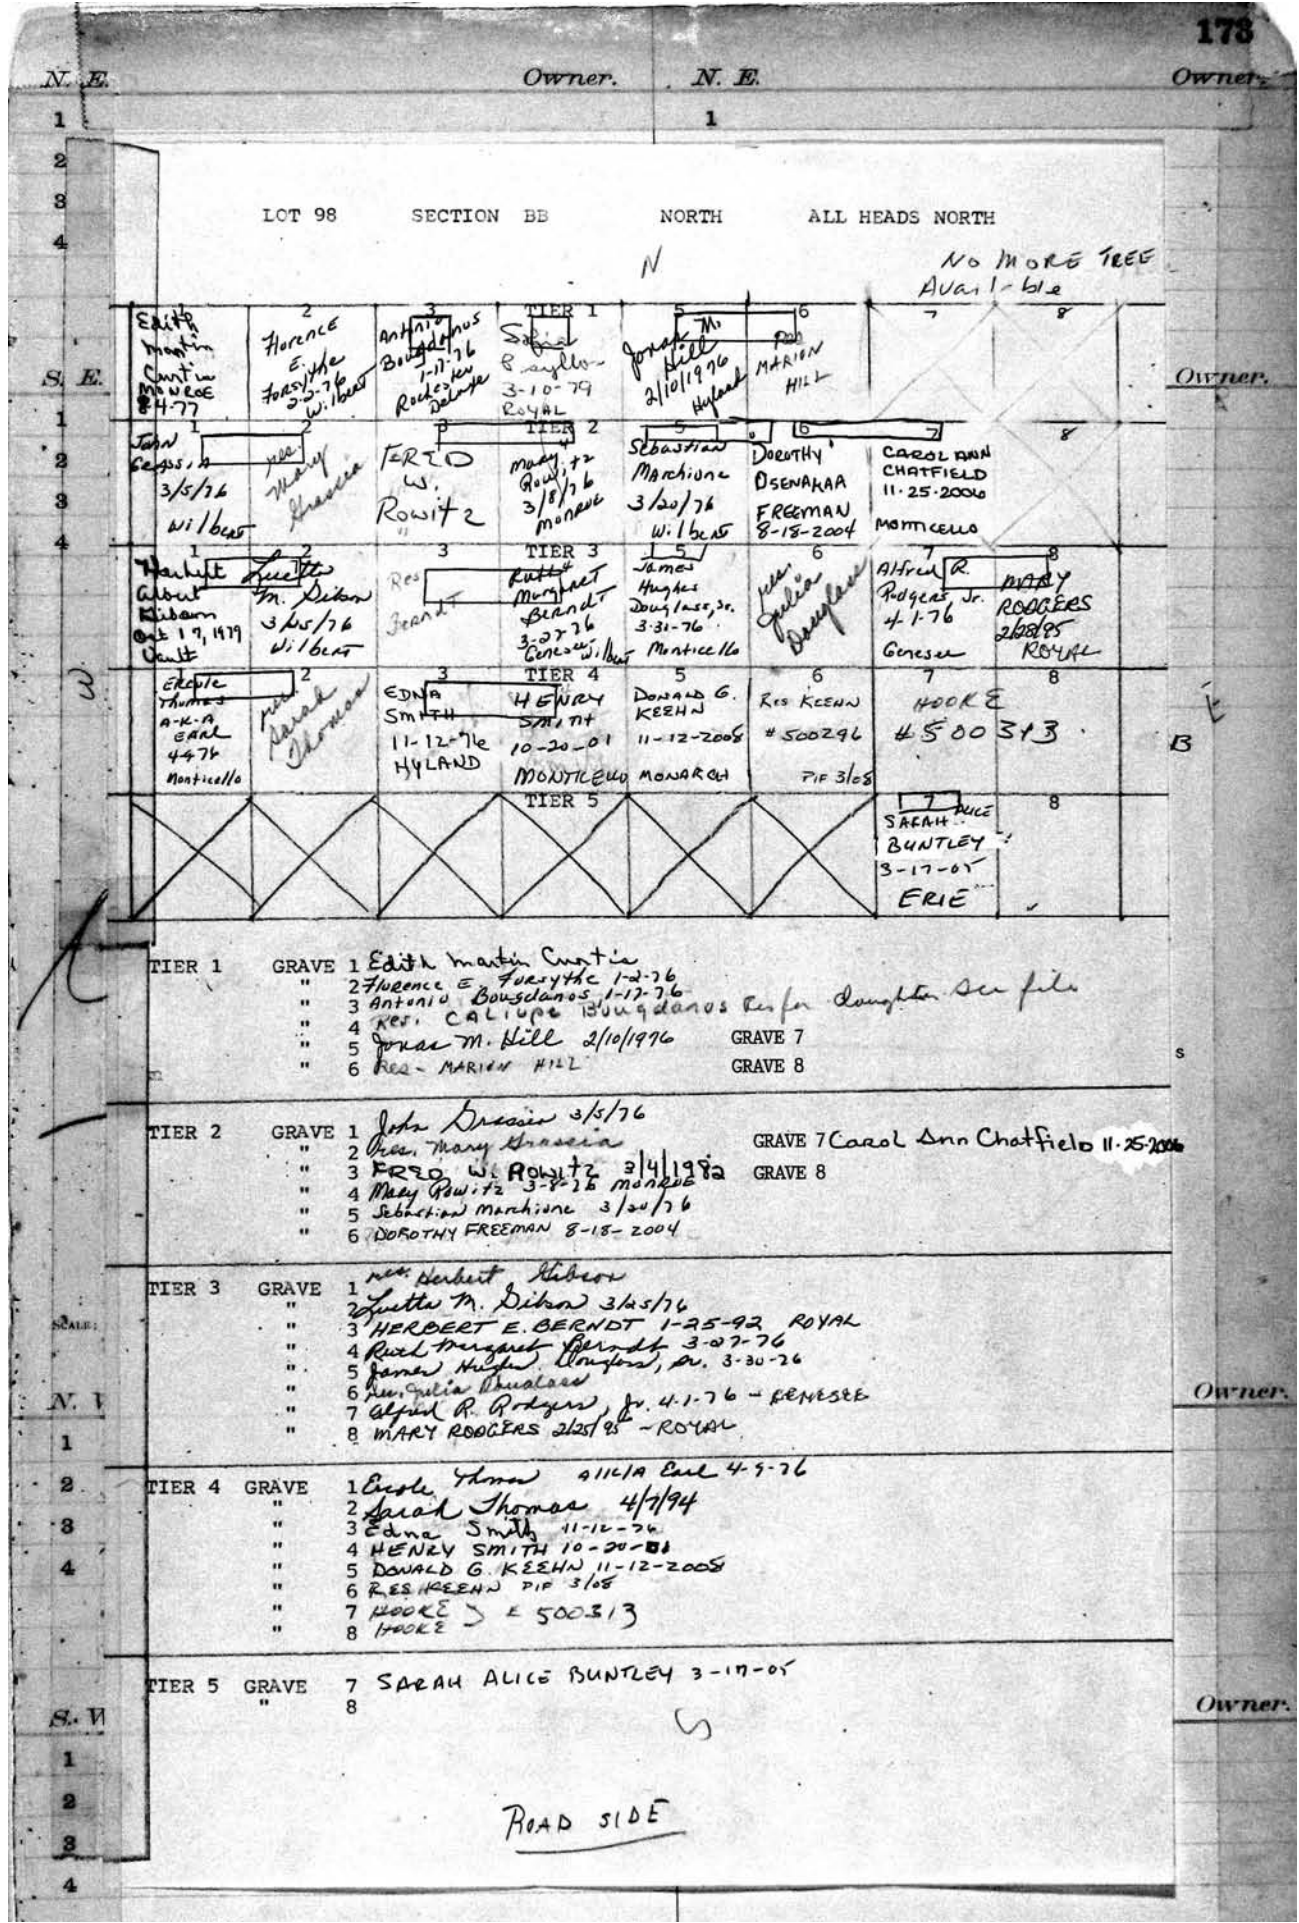 173
N. E. Owner. N. E. Owner.
1 1
2
3
4
LOT 98 SECTION BB NORTH ALL HEADS NORTH
N
NO MORE TREE
Available
TIER 1
1 2 3 5 6 7 8
Edith
Martin
Curtis
MONROE
8-4-77
Florence
E.
Forsythe
2-2-76
Wilbert
Antonio
Bougdanos
1-17-76
Rochester
Deluxe
Sofia
3-10-79
ROYAL
Jonas M.
Hill
2/10/1976
Hyland
Res
MARION
HILL
S. E. Owner.
1
2
3
4
TIER 2
1 2 3 4 5 6 7 8
John
Grassia
3/5/76
Wilbert
res.
Mary
Grassia
FRED
W.
Rowitz
"
Mary
Rowitz
3/8/76
MONROE
Sebastian
Marchione
3/20/76
Wilbert
DOROTHY
OSENAKAA
FREEMAN
8-18-2004
CAROL ANN
CHATFIELD
11-25-2006
MONTICELLO
TIER 3
1 2 3 4 5 6 7 8
Herbert
Albert
Gibson
Oct 17, 1979
Vault
Luetta
M. Gibson
3/25/76
Wilbert
Res
Berndt
Ruth
Margaret
Berndt
3-27-76
Genesee Wilbert
James
Hughes
Douglass, Sr.
3-31-76
Monticello
res.
Julia
Douglass
Alfred R.
Rodgers Jr.
4-1-76
Genesee
MARY
RODGERS
2/28/95
ROYAL
W E
TIER 4
1 2 3 4 5 6 7 8
Ercole
Thomas
A-K-A
EARL
4-9-76
Monticello
res.
Sarah
Thomas
EDNA
SMITH
11-12-76
HYLAND
HENRY
SMITH
10-20-01
MONTICELLO
DONALD G.
KEEHN
11-12-2008
MONARCH
Res KEEHN
# 500296
PIF 3/08
HOOKE
# 500313
B
TIER 5
7 8
SARAH ALICE
BUNTLEY
3-17-05
ERIE
TIER 1 GRAVE 1 Edith Martin Curtis
" 2 Florence E Forsythe 1-2-76
" 3 Antonio Bougdanos 1-17-76
" 4 Res. CALIUPE Bougdanos Res for daughter see file
" 5 Jonas M. Hill 2/10/1976 GRAVE 7
" 6 Res - MARION HILL GRAVE 8
S
TIER 2 GRAVE 1 John Grassia 3/5/76
" 2 Res. Mary Grassia GRAVE 7 Carol Ann Chatfield 11-25-2006
" 3 FRED W. ROWITZ 3/4/1982 GRAVE 8
" 4 Mary Rowitz 3-8-76 MONROE
" 5 Sebastian Marchione 3/20/76
" 6 DOROTHY FREEMAN 8-18-2004
TIER 3 GRAVE 1 res. Herbert Gibson
" 2 Luetta M. Gibson 3/25/76
SCALE:
" 3 HERBERT E. BERNDT 1-25-92 ROYAL
" 4 Ruth Margaret Berndt 3-27-76
" 5 James Hughes Douglass, Sr. 3-30-76
" 6 Res. Julia Douglass
" 7 Alfred R. Rodgers, Jr. 4-1-76 - GENESEE
" 8 MARY RODGERS 2/25/95 - ROYAL
N. W Owner.
1
2
3
4
TIER 4 GRAVE 1 Ercole Thomas A/K/A Earl 4-9-76
" 2 Sarah Thomas 4/7/94
" 3 Edna Smith 11-12-76
" 4 HENRY SMITH 10-20-01
" 5 DONALD G. KEEHN 11-12-2008
" 6 RES KEEHN PIF 3/08
" 7 HOOKE } # 500313
" 8 HOOKE
TIER 5 GRAVE 7 SARAH ALICE BUNTLEY 3-17-05
" 8
S
S. W Owner.
1
2
3
4
ROAD SIDE